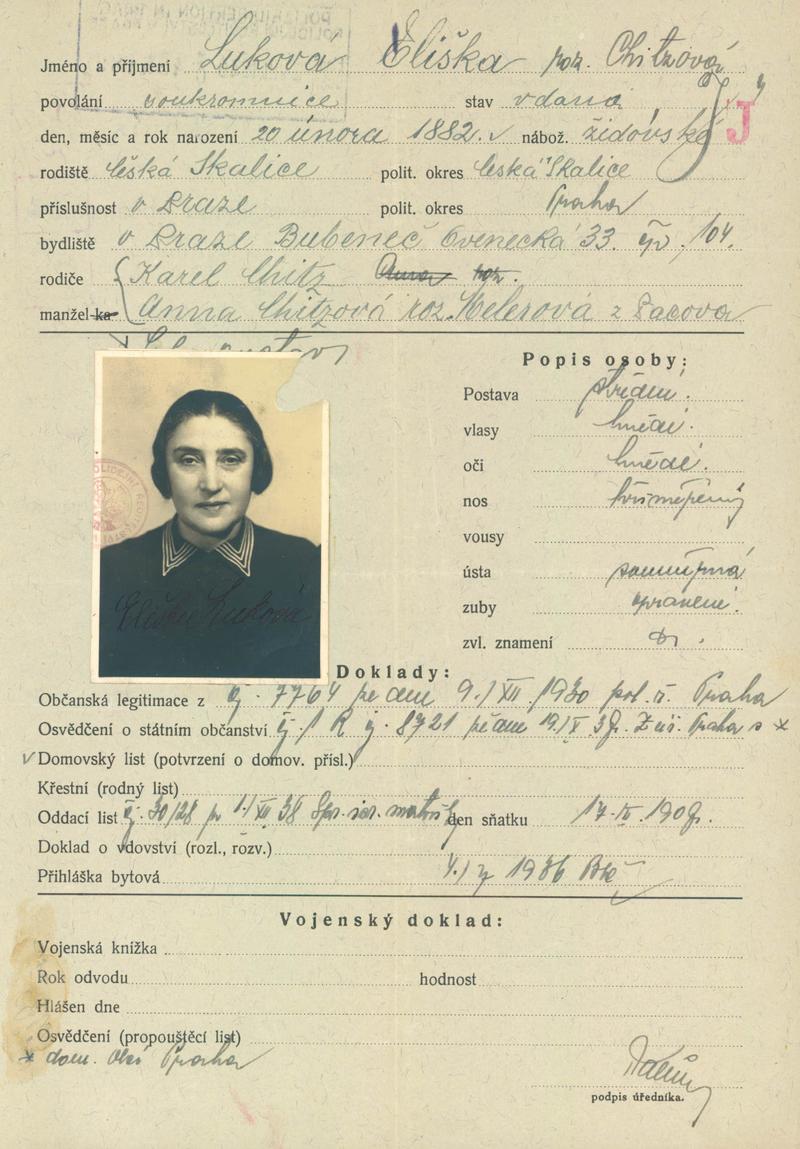 Jméno a příjmení Luková Eliška roz. Chitzová
povolání soukromnice stav vdaná
den, měsíc a rok narození 20 února 1882. nábož. židovské J
rodiště Česká Skalice polit. okres Česká Skalice
příslušnost v Praze polit. okres Praha
bydliště v Praze Bubeneč Ovenecká 33. čp. 104.
rodiče Karel Chitz Anna roz.
manžel-ka Anna Chitzová roz. Melerová z Pacova
Popis osoby:
Postava střední.
vlasy hnědé.
oči hnědé.
nos
vousy
ústa souměrná
zuby spravené.
zvl. znamení
Eliška Luková
Doklady:
Občanská legitimace z čj. 7764 ze dne 9./XII.1930 pol. ř. Praha
Osvědčení o státním občanství čj. 8721 ze dne Praha
Domovský list (potvrzení o domov. přísl.)
Křestní (rodný list)
Oddací list čj. 30/28 den sňatku
Doklad o vdovství (rozl., rozv.)
Přihláška bytová 1936
Vojenský doklad:
Vojenská knížka
Rok odvodu hodnost
Hlášen dne
Osvědčení (propouštěcí list)
* dom. Praha
podpis úředníka.